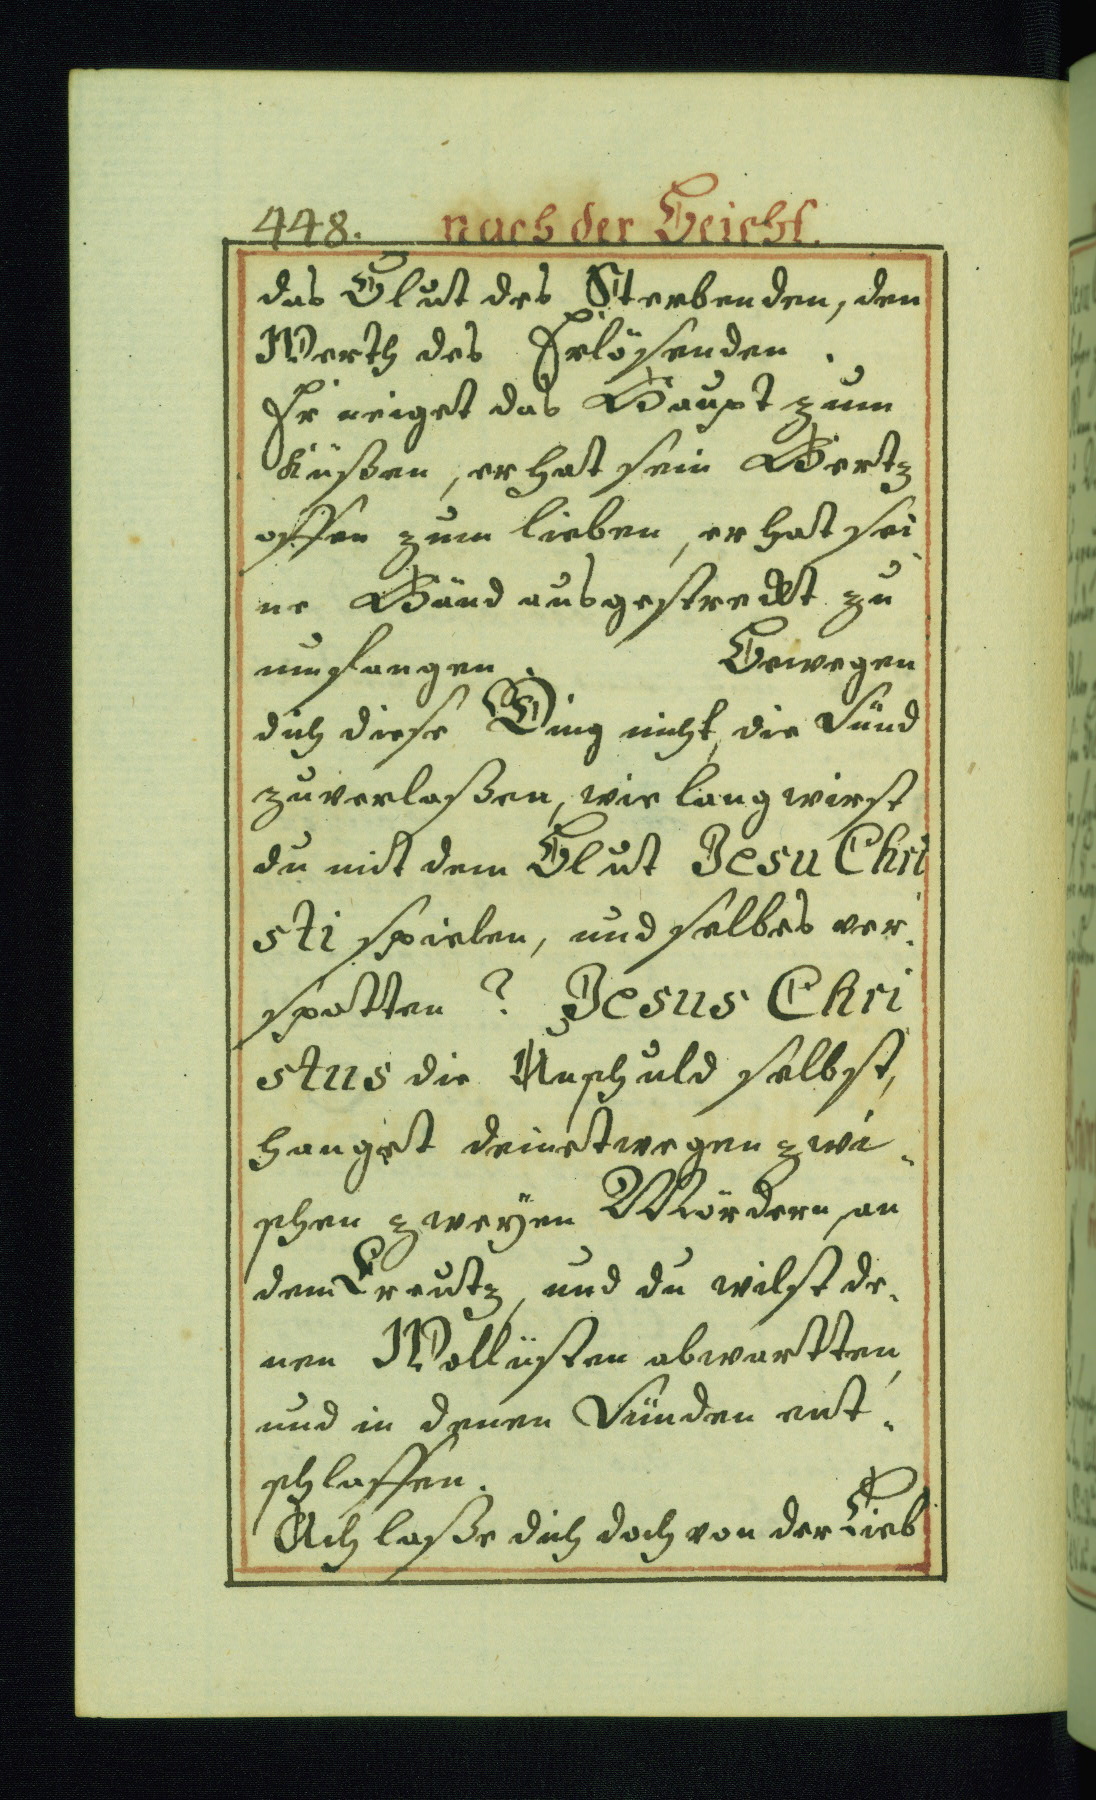 448. nach der Beicht.
das Blut des Sterbenden, den
Werth des Erlösenden.
Er neiget das Haupt zum
küßen, er hat sein Hertz
offen zum lieben, er hat sei
ne Händ ausgestreckt zu
umfangen. Bewegen
dich diese Ding nicht, die Sünd
zuverlaßen, wie lang wirst
du mit dem Blut Jesu Chri
sti spielen, und selbes ver¸
spotten? Jesus Chri
stus die Unschuld selbst,
hanget deinetwegen zwi¸
schen zweÿen Mördern, an
dem Creutz, und du wilst de¸
nen Wollüsten abwartten,
und in denen Sünden ent¸
schlaffen.
Ach laße dich doch von der Lieb